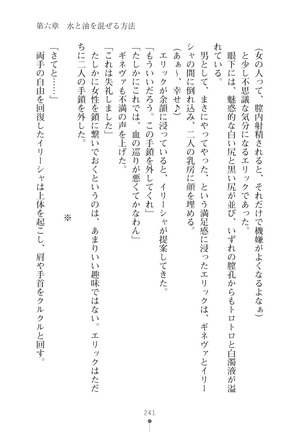 第六章　水と油を混ぜる方法
(女の人って、膣内射精されると、それだけで機嫌がよくなるよなぁ)
と少し不思議な気分になるエリックであった。
眼下には、魅惑的な白い尻と黒い尻が並び、いずれの膣孔からもトロトロと白濁液が溢
れている。
(あぁ～、幸せ♪)
男として、まさにやってやった、という満足感に浸ったエリックは、ギネヴァとイリー
シャの間に倒れ込み、二人の乳房に顔を埋める。
エリックが余韻に浸っていると、イリーシャが提案してきた。
「もういいだろう。この手鎖を外してくれ」
「たしかにこれでは、血の巡りが悪くてかなわん」
ギネヴァも不満の声を上げた。
「これは失礼しました」
たしかに女性を鎖に繋いでおくというのは、あまりいい趣味ではない。エリックはただ
ちに二人の手鎖を外した。
※
「さてと……」
両手の自由を回復したイリーシャは上体を起こし、肩や手首をクルクルと回す。
241